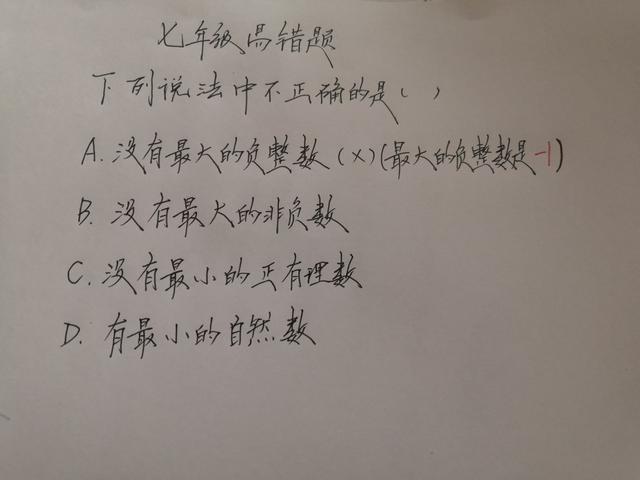 七年级易错题
下列说法中不正确的是( )
A.没有最大的负整数(×)(最大的负整数是-1)
B.没有最大的非负数
C.没有最小的正有理数
D.有最小的自然数